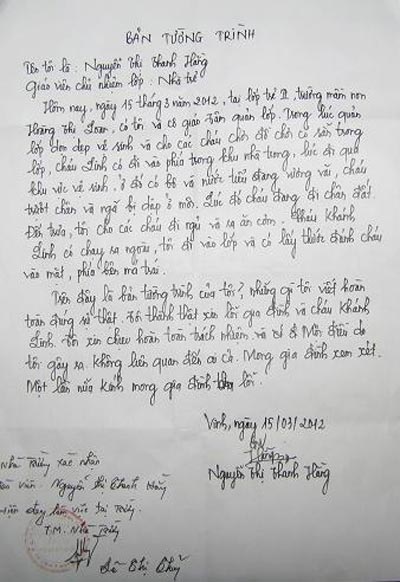 BẢN TƯỜNG TRÌNH
Tên tôi là: Nguyễn Thị Thanh Hằng
Giáo viên chủ nhiệm lớp: Nhà trẻ
Hôm nay, ngày 15 tháng 3 năm 2012, tại lớp trẻ II, trường mầm non
Hoàng Thị Loan, có tôi và cô giáo Trâm quản lớp. Trong lúc quản
lớp dọn dẹp vệ sinh và cho các cháu chơi đồ chơi có sẵn trong
lớp, cháu Linh có đi vào phía trong khu nhà trong, lúc đi qua
khu vực vệ sinh, ở đó có bô và nước tiểu đang vương vãi, cháu
trượt chân và ngã bị dập ở môi. Lúc đó cháu đang đi chân đất.
Đến trưa, tôi cho các cháu đi ngủ và ra ăn cơm. Cháu Khánh
Linh có chạy ra ngoài, tôi đi vào lớp và có lấy thước đánh cháu
vào mặt, phía bên má trái.
Trên đây là bản tường trình của tôi, những gì tôi viết hoàn
toàn đúng sự thật. Tôi thành thật xin lỗi gia đình và cháu Khánh
Linh. Tôi xin chịu hoàn toàn trách nhiệm và Mọi điều do
tôi gây ra. Không liên quan đến ai cả. Mong gia đình xem xét.
Một lần nữa kính mong gia đình lỗi.
Vinh, ngày 15/03/2012
Hằng
Nguyễn Thị Thanh Hằng
Nhà Trường xác nhận
viên: Nguyễn Thị Thanh Hằng
hiện đang làm việc tại Trường
T.M. Nhà Trường
Thị Thuỷ